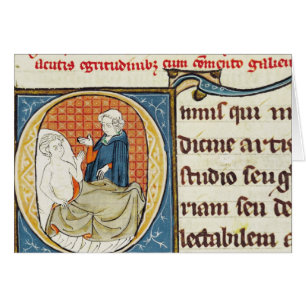 acutis egritudinibꝫ cum comento galien
Omnis qui m
dicine artis
studio seu gl
riam seu de
lectabilem a